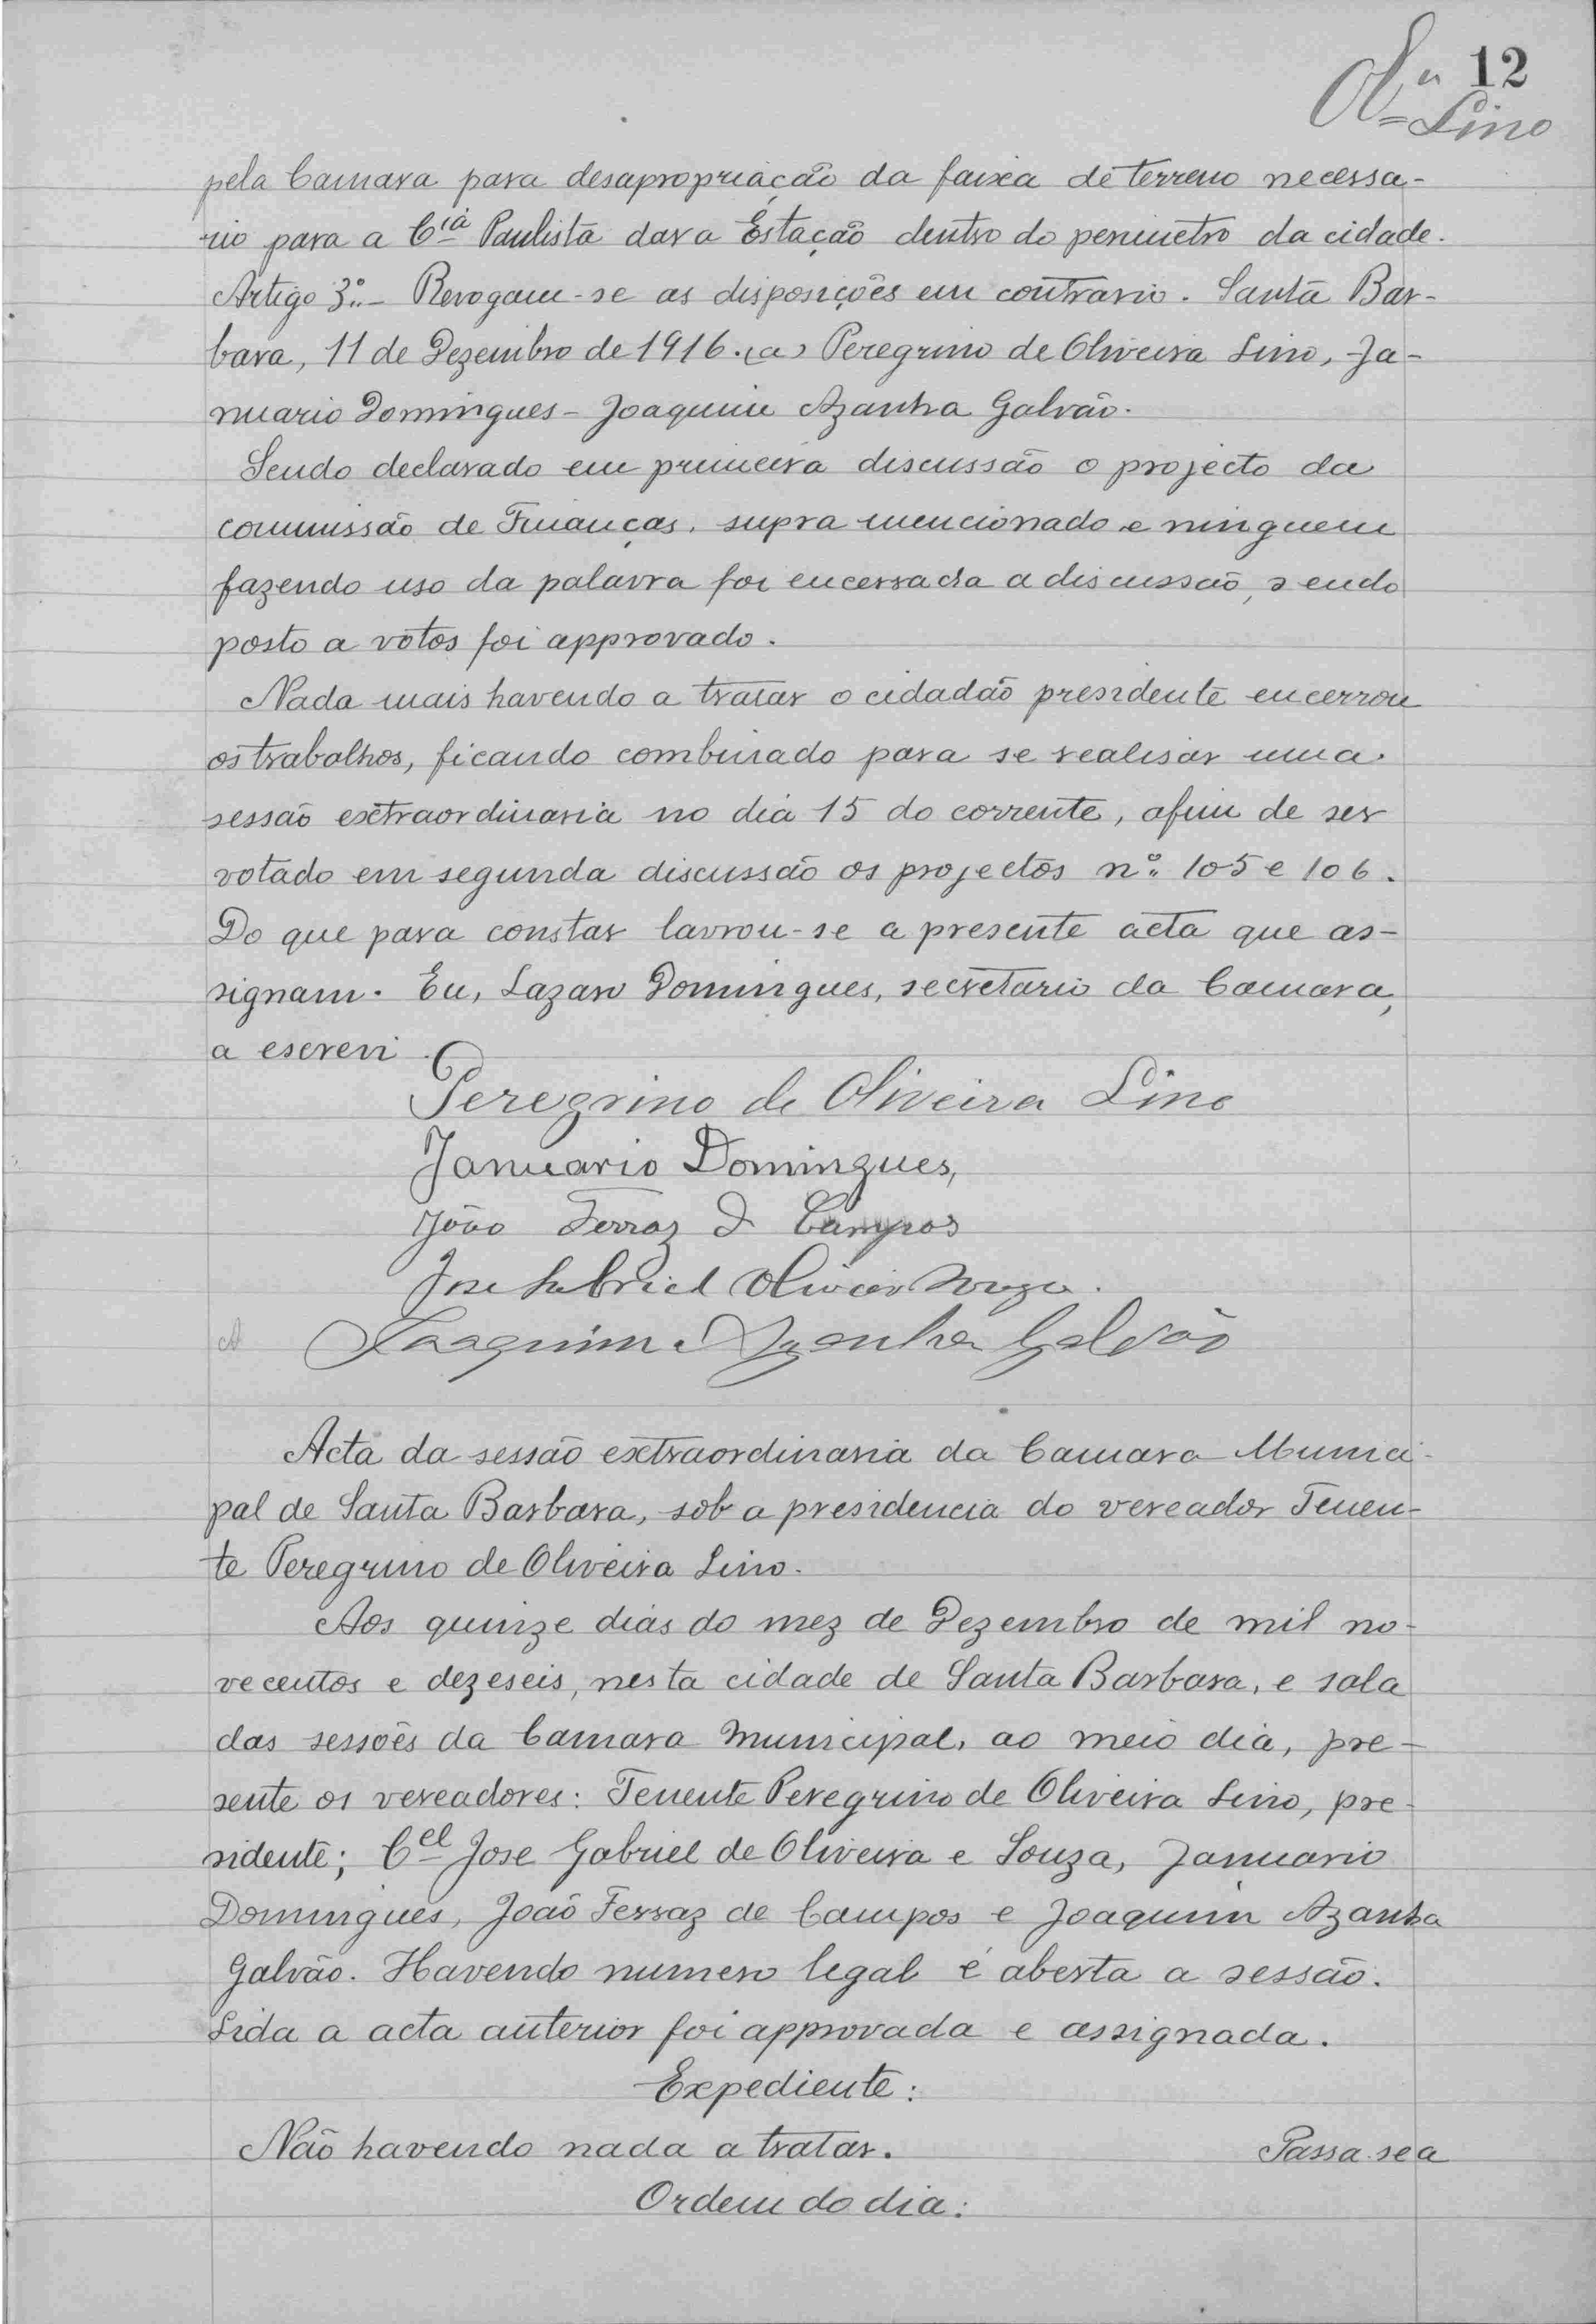 12
Olª Lino
pela Camara para desapropriação da faixa de terreno necessa-
rio para a Ciª Paulista dar a Estação dentro do perimetro da cidade.
Artigo 3º - Revogam-se as disposições em contrario. Santa Bar-
bara, 11 de Dezembro de 1916. (a) Peregrino de Oliveira Lino, Ja-
nuario Domingues - Joaquim Azanha Galvão.
Sendo declarado em primeira discussão o projecto da
commissão de Finanças, supra mencionado e ninguem
fazendo uso da palavra foi encerrada a discussão, sendo
posto a votos foi approvado.
Nada mais havendo a tratar o cidadão presidente encerrou
os trabalhos, ficando combinado para se realisar uma
sessão extraordinaria no dia 15 do corrente, afim de ser
votado em segunda discussão os projectos nº 105 e 106.
Do que para constar lavrou-se a presente acta que as-
signam. Eu, Lazaro Domingues, secretario da Camara,
a escrevi.
Peregrino de Oliveira Lino
Januario Domingues,
João Ferraz d Campos
Jose Gabriel Oliveira Souza.
Joaquim Azanha Galvão
Acta da sessão extraordinaria da Camara Munici-
pal de Santa Barbara, sob a presidencia do vereador Tenen-
te Peregrino de Oliveira Lino.
Aos quinze dias do mez de Dezembro de mil no-
vecentos e dezeseis, nesta cidade de Santa Barbara, e sala
das sessões da Camara Municipal, ao meio dia, pre-
sente os vereadores: Tenente Peregrino de Oliveira Lino, pre-
sidente; Cel Jose Gabriel de Oliveira e Souza, Januario
Domingues, João Ferraz de Campos e Joaquim Azanha
Galvão. Havendo numero legal é aberta a sessão.
Lida a acta anterior foi approvada e assignada.
Expediente:
Não havendo nada a tratar. Passa-se a
Ordem do dia: